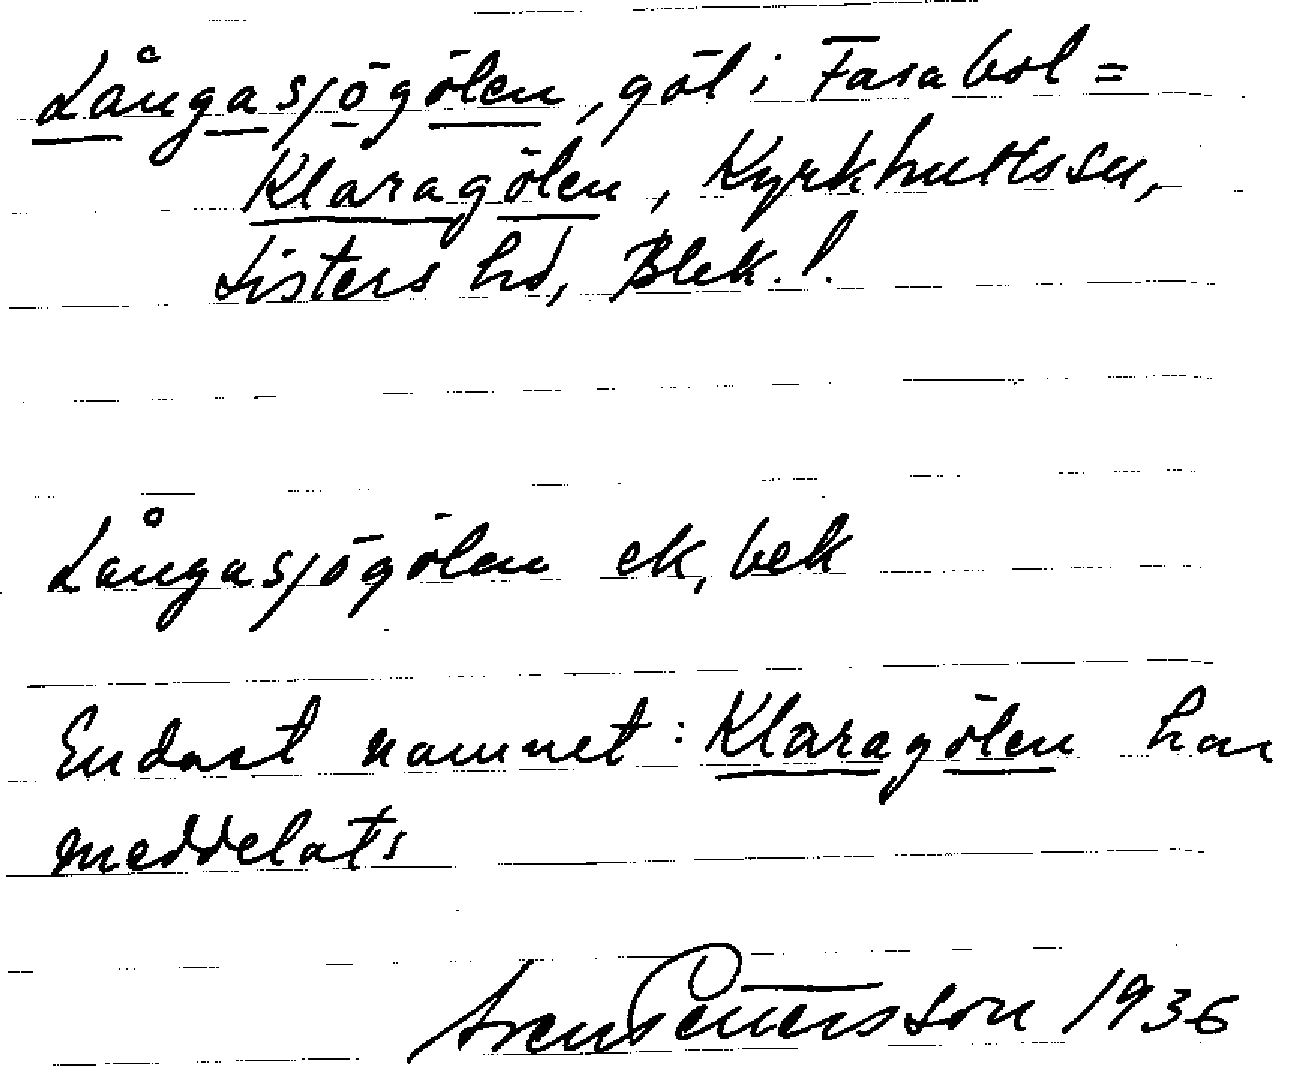 Långasjögölen, göl i Farabol =
Klaragölen, Kyrkhultssn,
Listers hd, Blek. l.
Långasjögölen ek, bek
Endast namnet: Klaragölen har
meddelats
Sven Pettersson 1936